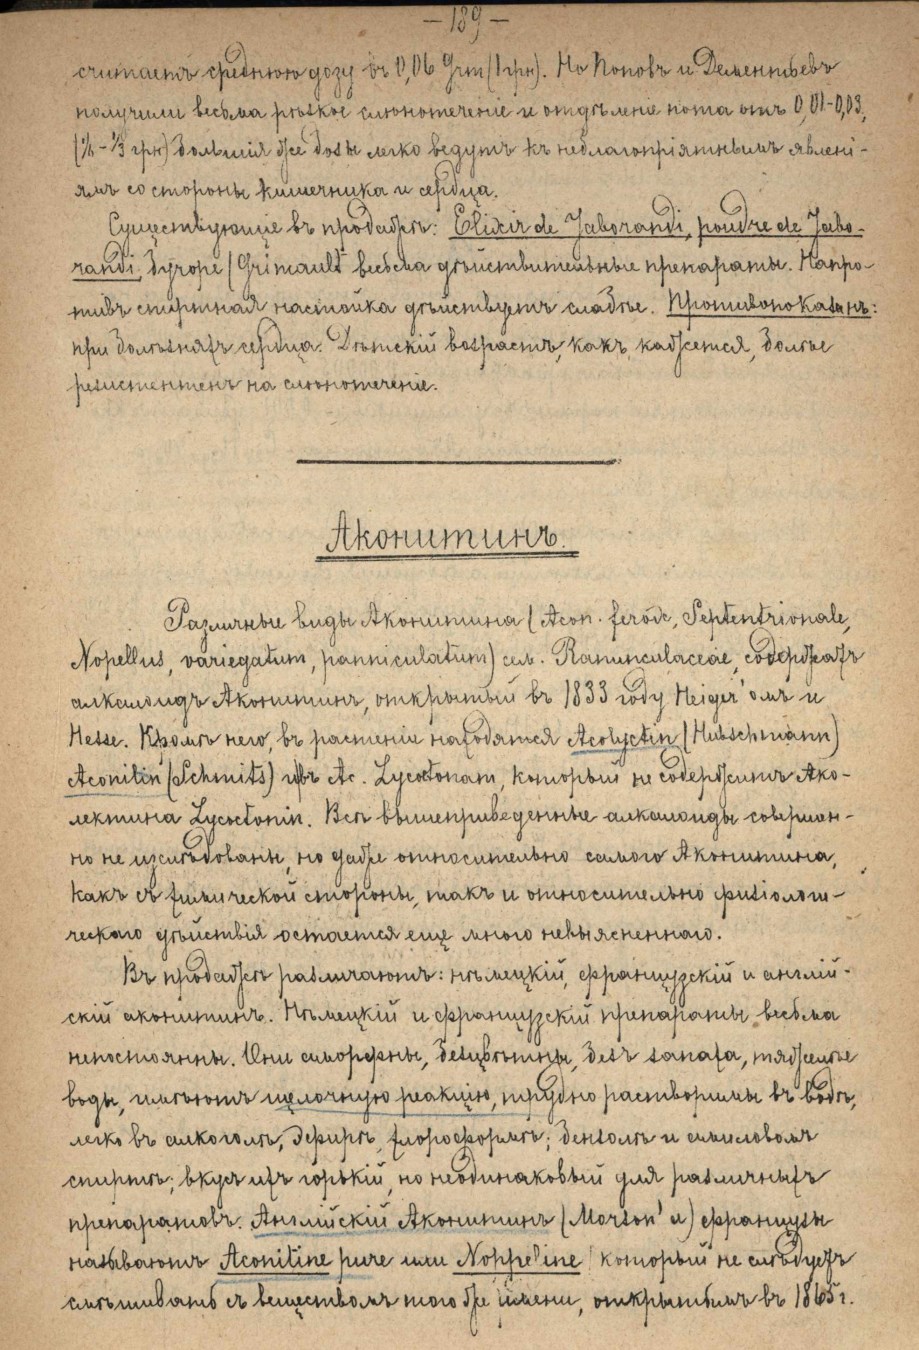 — 189 —
считаетъ среднюю дозу въ 0,06 Grm (1 грн). Но Поповъ и Дементьевъ
получили весьма рѣзкое слюнотеченіе и отдѣленіе пота отъ 0,01–0,03,
(⅙–⅓ грн) Большія же дозы легко ведутъ къ неблагопріятнымъ явлені-
ямъ со стороны кишечника и сердца.
Существующіе въ продажѣ: Elixir de Jaborandi, poudre de Jabo-
randi, (Grimault весьма дѣйствительные препараты. Напро-
тивъ спиртная настойка дѣйствуетъ слабѣе. Противопоказанъ:
при болѣзняхъ сердца. Дѣтскій возрастъ, какъ кажется, болѣе
резистентенъ на слюнотеченіе.
Аконитинъ.
Различные виды Аконитина (Acon. feroic, Septentrionale,
Nopellus, variegatum, panniculatum) сем. Ranunculaceae, содержатъ
алкалоидъ Аконитинъ, открытый въ 1833 году Heiger'омъ и
Hesse. Кромѣ него, въ растеніи находятся Acolyctin (Hubschmann)
Aconitin (Schmits) въ Ac. Lycoctonam, который не содержитъ Ако-
лектина Lycoctonin. Всѣ вышеприведенные алкалоиды совершен-
но не изслѣдованы, но даже относительно самого Аконитина,
какъ съ химической стороны, такъ и относительно физіологи-
ческаго дѣйствія остается еще много невыясненнаго.
Въ продажѣ различаютъ: нѣмецкій, французскій и англій-
скій аконитинъ. Нѣмецкій и французскій препараты весьма
непостоянны. Они аморфны, безцвѣтны, безъ запаха, тяжелѣе
воды, имѣютъ щелочную реакцію, трудно растворимы въ водѣ,
легко въ алкоголѣ, эфирѣ, хлороформѣ; бензолѣ и амиловомъ
спиртѣ; вкусъ ихъ горькій, но неодинаковый для различныхъ
препаратовъ. Англійскій Аконитинъ (Morson'a) французы
называютъ Aconitine pure или Noppeline который не слѣдуетъ
смѣшивать съ веществомъ того же имени, открытымъ въ 1865 г.